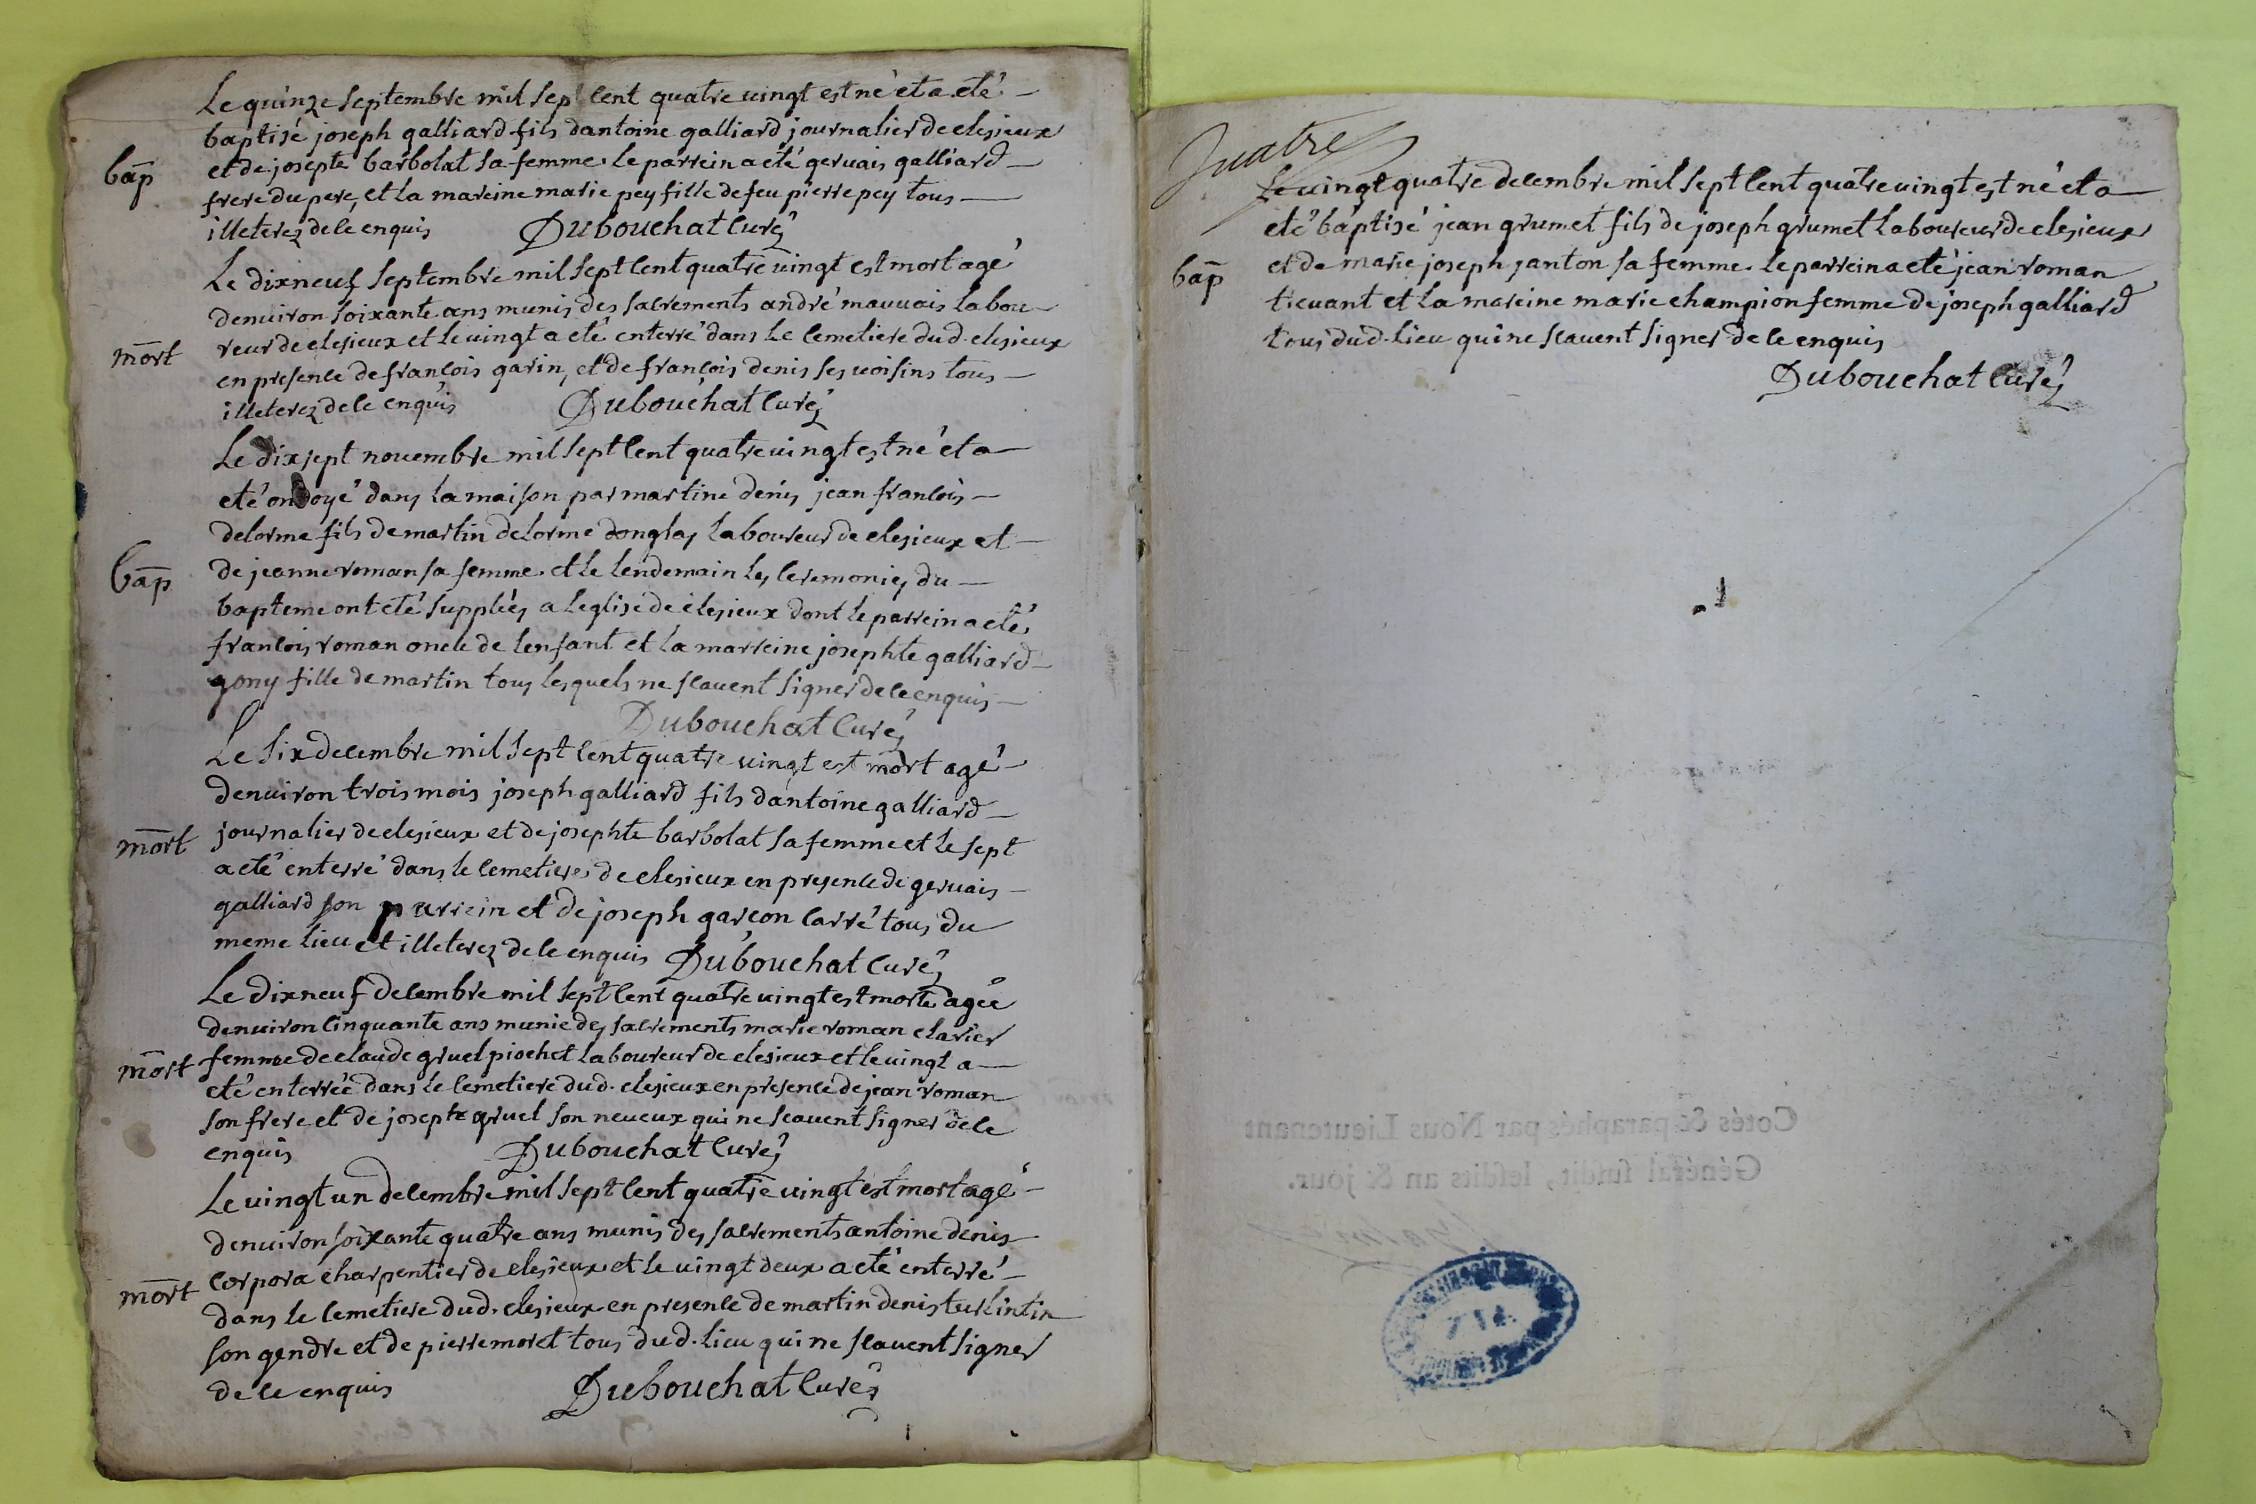 Le quinze septembre mil sept cent quatre vingt est né et a eté
baptisé joseph galliard fils dantoine galliard journalier de clesieux
bap et de josepte barbolat sa femme. le parrein a eté gervais galliard
frere du pere, et la mareine marie pey fille de feu pierre pey tous
illeterez de ce enquis Dubouchat Curé
Le dixneuf septembre mil sept cent quatre vingt est mort agé
denuiron soixante ans munis des sacrements andré mauuais labou-
mort reur de clesieux et le vingt a eté enterré dans le cemetiere dud. clesieux
en presence de francois garin, et de francois denis ses voisins tous
illeterez de ce enquis Dubouchat Curé
Le dix sept nouembre mil sept cent quatre vingt est né et a
eté ondoyé dans la maison par martine denis jean francois
delorme fils de martin delorme donglas laboureur de clesieux et
bap de jeanne roman sa femme. et le lendemain les ceremonies du
bapteme ont eté supplées a leglise de clesieux dont le parrein a eté
francois roman oncle de lenfant et la marreine josephte galliard
gony fille de martin tous lesquels ne scauent signer de ce enquis
Dubouchat Curé
Le six decembre mil sept cent quatre vingt est mort agé
denuiron trois mois joseph galliard fils dantoine galliard
mort journalier de clesieux et de josephte barbolat sa femme et le sept
a eté enterré dans le cemetiere de clesieux en presence de geruais
galliard son parrein et de joseph garcon carré tous du
meme lieu et illeterez de ce enquis Dubouchat Curé
Le dixneuf decembre mil sept cent quatre vingt est morte agée
denuiron cinquante ans munie des sacrements marie roman clarier
mort femme de claude gruel piochet laboureur de clesieux et le vingt a
eté enterrée dans le cemetiere dud. clesieux en presence de jean roman
son frere et de joseph gruel son neueux qui ne scauent signer de ce
enquis Dubouchat Curé
Le vingt un decembre mil sept cent quatre vingt est mort agé
denuiron soixante quatre ans munis des sacrements antoine denis
mort corpora charpentier de clesieux et le vingt deux a eté enterré
dans le cemetiere dud. clesieux en presence de martin denis turlintin
son gendre et de pierre moret tous dud. lieu qui ne scauent signer
de ce enquis Dubouchat Curé
quatre
Le vingt quatre decembre mil sept cent quatre vingt est né et a
eté baptisé jean grumet fils de joseph grumet laboureur de clesieux
bap et de marie joseph janton sa femme. le parrein a eté jean roman
ticuant et la mareine marie champion femme de joseph galliard
tous dud. lieu qui ne scauent signer de ce enquis
Dubouchat Curé
Cotés & paraphés par Nous Lieutenant
Général susdit, lesdits an & jour.